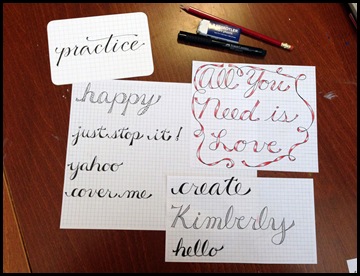 practice
happy
just stop it!
yahoo
cover me
All You
Need is
Love
create
Kimberly
hello